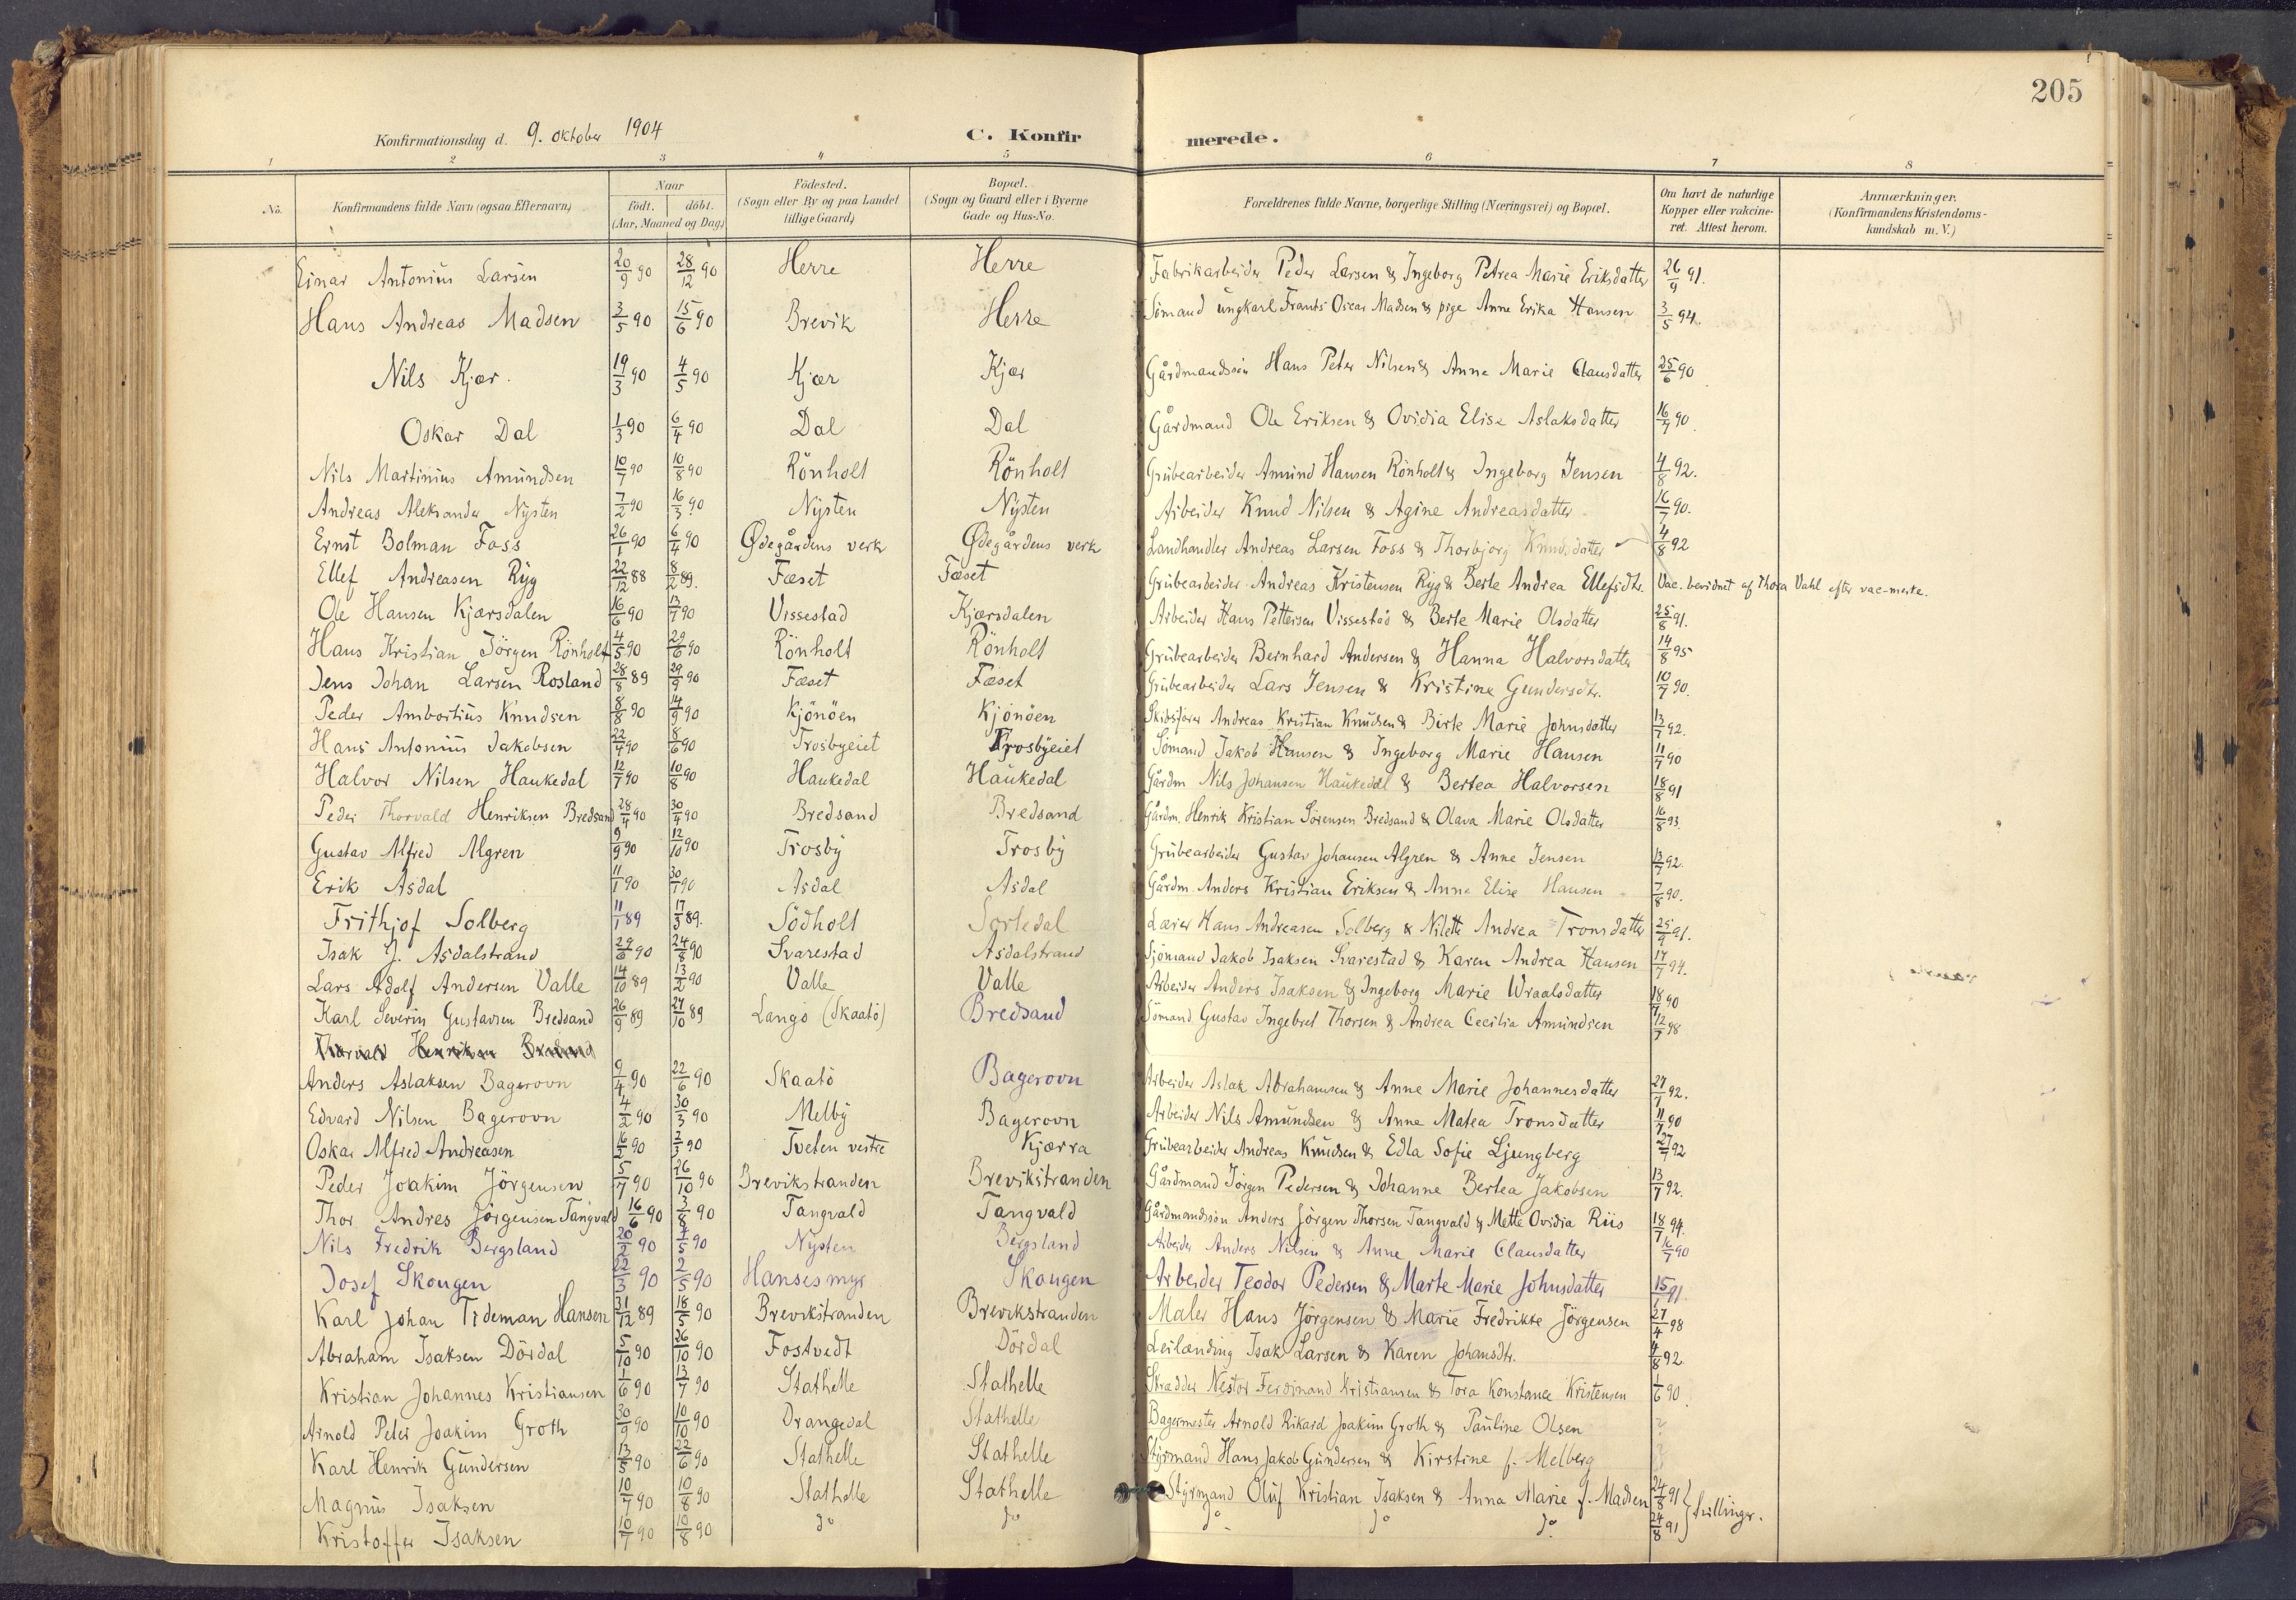 205
Konfirmationsdag d. 9. oktober 1904 C. Konfirmerede.
1 2 3 4 5 6 7 8
No. Konfirmandens fulde Navn (ogsaa Efternavn) Naar födt. döbt. (Aar, Maaned og Dag) Födested. (Sogn eller By og paa Landet tillige Gaard) Bopæl. (Sogn og Gaard eller i Byerne Gade og Hus-No. Forældrenes fulde Navne, borgerlige Stilling (Næringsvei) og Bopæl. Om havt de naturlige Kopper eller vakcineret. Attest herom. Anmærkninger. (Konfirmandens Kristendomskundskab m. V.)
Einar Antonius Larsen 20/9 90 28/12 90 Herre Herre Fabrikarbeider Peder Larsen & Ingeborg Petrea Marie Eriksdatter 26/9 91.
Hans Andreas Madsen 3/5 90 15/6 90 Brevik Herre Sömand ungkarl Frants Oscar Madsen & pige Anne Erika Hansen 3/5 94.
Nils Kjær. 19/3 90 4/5 90 Kjær Kjær Gårdmandssön Hans Peter Nilsen & Anne Marie Clausdatter 25/6 90
Oskar Dal 1/3 90 6/4 90 Dal Dal Gårdmand Ole Eriksen & Ovidia Elise Aslaksdatter 16/7 90.
Nils Martinius Amundsen 10/7 90 10/8 90 Rönholt Rönholt Grubearbeider Amund Hansen Rönholt & Ingeborg Jensen 4/8 92.
Andreas Aleksander Nysten 7/2 90 16/3 90 Nysten Nysten Arbeider Knud Nilsen & Agine Andreasdatter 16/7 90.
Ernst Bolman Foss 26/1 90 6/4 90 Ødegårdens verk Ødegårdens verk Landhandler Andreas Larsen Foss & Thorbjorg Knudsdatter 4/8 92
Ellef Andreasen Ryg 22/12 88 8/2 89. Fæset Fæset Grubearbeider Andreas Kristensen Ryg & Berte Andrea Ellefsdtr. Vac. bevidnet af Thora Dahl efter vac-merke.
Ole Hansen Kjærsdalen 16/6 90 13/7 90 Vissestad Kjærsdalen Arbeider Hans Pettersen Vissestad & Berte Marie Olsdatter 25/8 91.
Hans Kristian Jörgen Rönholt 4/5 90 29/6 90 Rönholt Rönholt Grubearbeider Bernhard Andersen & Hanna Halvorsdatter 14/8 95
Jens Johan Larsen Rosland 28/8 89 29/9 90 Fæset Fæset Grubearbeider Lars Jensen & Kristine Gundersdtr. 10/7 90.
Peder Ambortius Knudsen 8/8 90 14/9 90 Kjönöen Kjönöen Skibsförer Andreas Kristian Knudsen & Birte Marie Johnsdatter 13/7 92.
Hans Antonius Jakobsen 22/4 90 8/6 90 Trosbyeiet Trosbyeiet Sömand Jakob Hansen & Ingeborg Marie Hansen 11/7 90
Halvor Nilsen Haukedal 12/7 90 10/8 90 Haukedal Haukedal Gårdm Nils Johansen Haukedal & Bertea Halvorsen 18/8 91
Peder Thorvald Henriksen Bredsand 28/4 90 30/4 90 Bredsand Bredsand Gårdm. Henrik Kristian Sörensen Bredsand & Olava Marie Olsdatter 16/8 93.
Gustav Alfred Algren 9/9 90 12/10 90 Trosby Trosby Grubearbeider Gustav Johansen Algren & Anne Jensen 13/7 92.
Erik Asdal 11/1 90 30/1 90 Asdal Asdal Gårdm. Anders Kristian Eriksen & Anne Elise Hansen 7/8 90.
Frithjof Solberg 11/1 89 17/3 89. Södholt Sortedal Lærer Hans Andreasen Solberg & Nilette Andrea Tronsdatter 25/9 91.
Isak J. Asdalstrand 29/6 90 24/8 90 Svarestad Asdalstrand Sjömand Jakob Isaksen Svarestad & Karen Andrea Hansen 17/7 94.
Lars Adolf Andersen Valle 14/10 89 13/2 90 Valle Valle Arbeider Anders Isaksen & Ingeborg Marie Wraalsdatter 18/7 90
Karl Severin Gustavsen Bredsand 26/9 89 27/10 89 Langö (Skaatö) Bredsand Sömand Gustav Ingebret Thorsen & Andrea Cecilia Amundsen 12/7 98
Thorvald Henriksen Bredsand
Anders Aslaksen Bagerovn 9/4 90 22/6 90 Skaatö Bagerovn Arbeider Aslak Abrahamsen & Anne Marie Johannesdatter 27/7 92.
Edvard Nilsen Bagerovn 4/2 90 30/3 90 Melby Bagerovn Arbeider Nils Amundsen & Anne Matea Tronsdatter 11/7 90
Oskar Alfred Andreasen 16/2 90 2/3 90 Tveten vestre Kjærra Grubearbeider Andreas Knudsen & Edla Sofie Ljungberg 27/7 92
Peder Joakim Jörgensen 5/7 90 26/10 90 Brevikstranden Brevikstranden Gårdmand Jörgen Pedersen & Johanne Bertea Jakobsen 13/7 92.
Thor Andres Jörgensen Tangvald 16/6 90 3/8 90 Tangvald Tangvald Gårdmandssön Anders Jörgen Thorsen Tangvald & Mette Ovidia Riis 18/7 94.
Nils Fredrik Bergsland 20/2 90 4/5 90 Nysten Bergsland Arbeider Anders Nilsen & Anne Marie Clausdatter 16/7 90
Josef Skougen 22/3 90 2/5 90 Hansesmyr Skougen Arbeider Teodor Pedersen & Marte Marie Johnsdatter
Karl Johan Tideman Hansen 31/12 89 18/5 90 Brevikstranden Brevikstranden Maler Hans Jörgensen & Marie Fredrikte Jörgensen 27/4 98
Abraham Isaksen Dördal 5/10 90 26/10 90 Fostvedt Dördal Leilænding Isak Larsen & Karen Johansdtr. 4/8 92
Kristian Johannes Kristiansen 1/6 90 13/7 90 Stathelle Stathelle Skrædder Nestor Ferdinand Kristiansen & Tora Konstance Kristensen 1/6 90.
Arnold Peter Joakim Groth 30/9 90 10/10 90 Drangedal Stathelle Bagermester Arnold Rikard Joakim Groth & Pauline Olsen ?
Karl Henrik Gundersen 13/5 90 22/6 90 Stathelle Stathelle Styrmand Hans Jakob Gundersen & Kirstine f. Melberg ?
Magnus Isaksen 10/7 90 10/8 90 Stathelle Stathelle Styrmand Oluf Kristian Isaksen & Anna Marie f. Madsen 24/8 91 } tvillinger.
Kristoffer Isaksen 10/7 90 10/8 90 do do do do do 24/8 91